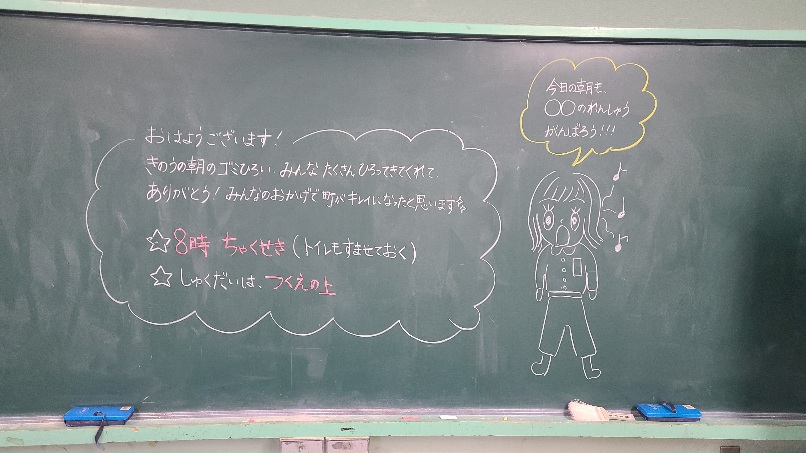 おはようございます!
きのうの朝のゴミひろい、みんなたくさんひろってきてくれて、
ありがとう!みんなのおかげで町がキレイになったと思います
☆8時 ちゃくせき(トイレもすませておく)
☆しゅくだいは、つくえの上
今日の朝も、
○○のれんしゅう
がんばろう!!!